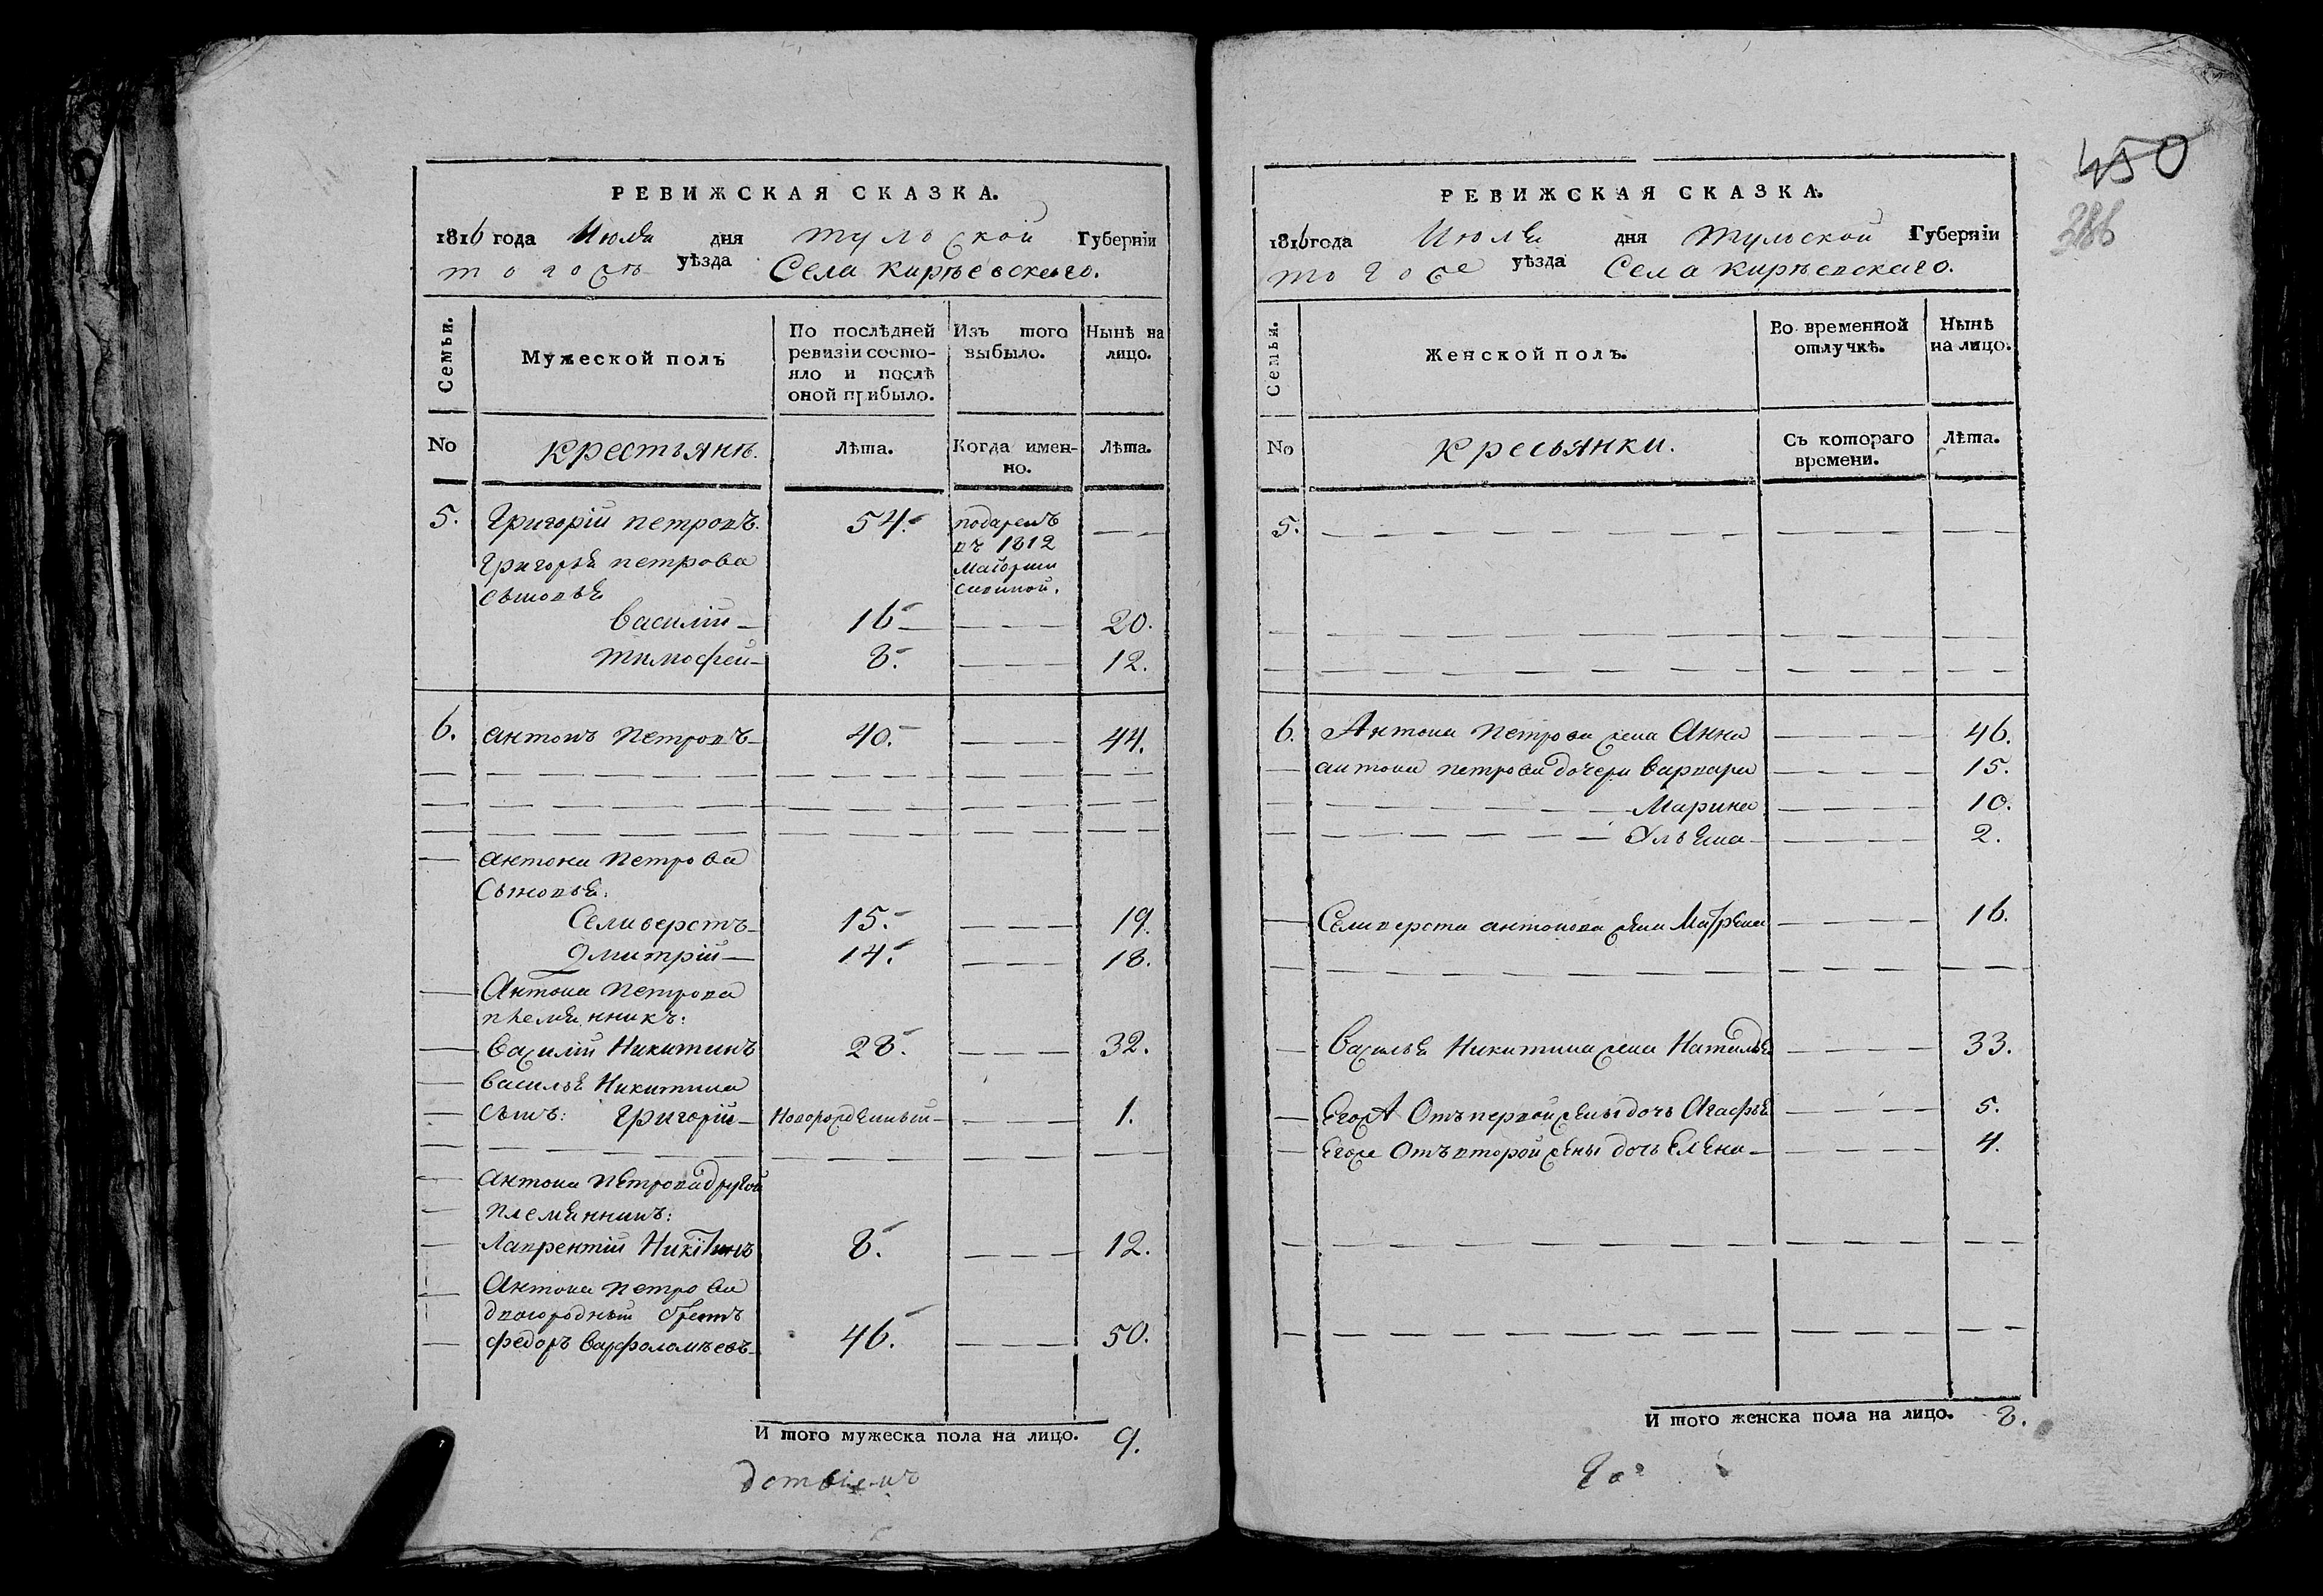 РЕВИЖСКАЯ СКАЗКА.
1816 года Июля дня тульской Губерніи
тогожъ уѣзда Села кирѣевскаго.
Семьи.
Мужеской полъ
По послѣдней ревизіи состо-
яло и послѣ оной прибыло.
Изъ того выбыло.
Нынѣ на лицо.
No
крестьянѣ.
Лѣта.
Когда имен-
но.
Лѣта.
5. Григорій петровъ. 54. подаренъ
въ 1812
Маіорши
Григорья петрова
сыновья
василій 16 20.
тимофей 8. 12.
6. антонъ петровъ 40. 44.
антона петрова
Сыновья:
Селиверстъ 15. 19.
Дмитрій 14. 18.
Антона петрова
племянникъ:
василій Никитинъ 28. 32.
василья Никитина
сынъ: григорій Новорожденный 1.
антона петрова другой
племянникъ:
Лаврентій Никитинъ 8. 12.
Антона петрова
двоюродный братъ
федоръ варфоломѣевъ 46. 50.
И того мужеска пола на лицо. 9.
РЕВИЖСКАЯ СКАЗКА.
1816 года Июля дня тульской Губерніи
тогоже уѣзда Села кирѣевскаго.
Семьи.
Женской полъ.
Во временной отлучкѣ.
Нынѣ на лицо.
No
кресьянки.
Съ котораго времени.
Лѣта.
5.
6. Антона петрова жена Анна 46.
антона петрова дочери варвара 15.
Марина 10.
Ульяна 2.
Селиверста антонова жена Матрена 16.
василья Никитина жена Наталья 33.
Егожъ Отъ первой жены дочь Агафья 5.
Егоже Отъ второй жены дочь Елена 4.
И того женска пола на лицо. 8.
450
286